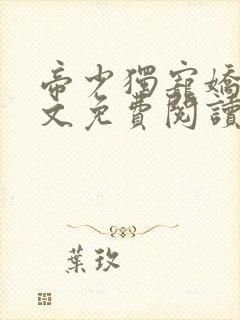 帝少獨寵嬌
文免費閱讀
葉玖